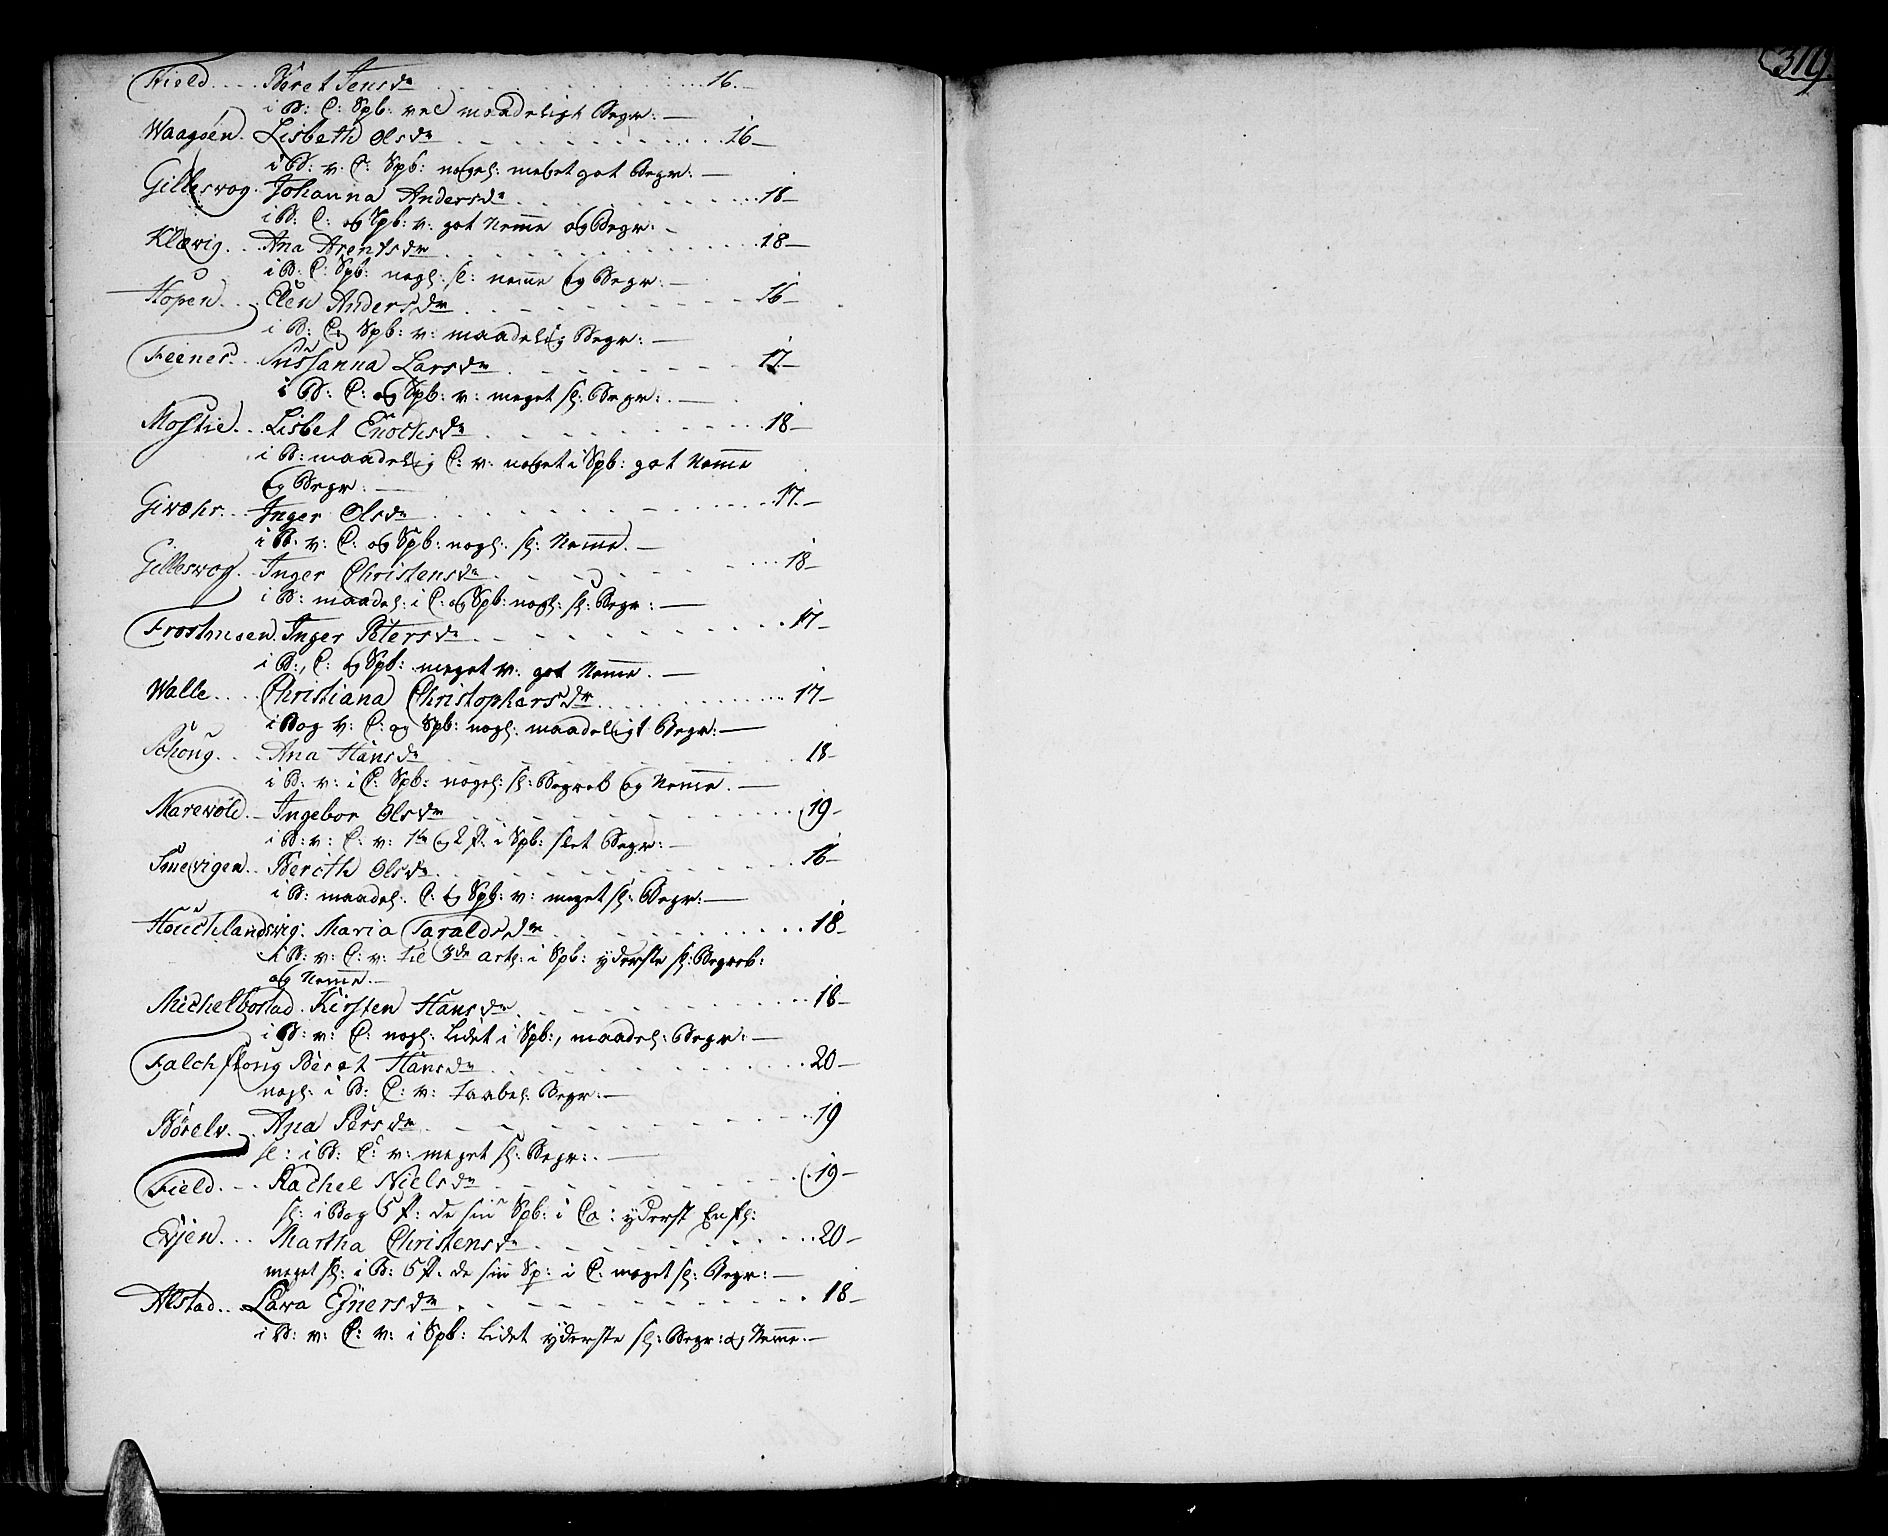 319.
Field.... Beret Jensdr ... 16.—
i B: C: Spb: vel maadeligt Begr:—
Waagøen. Lisbeth Olsdr ... 16—
i B: v: C: Spb: nogel: meget got Begr:—
Gillesvog. Johanna Andersdr ... 18—
i B: C: og Spb: v: got Neme og Begr:
Klævig.. Ana Arentsdr ... 18—
i B: C: Spb: nogl: sl: neme og Begr:—
Hopen... Elen Andersdr ... 16—
i B: C: Spb: v: maadelig Begr:—
Feenes.. Sussanna Larsdr ... 17—
i B: C: og Spb: v: meget sl: Begr:.—
Mostie... Lisbet Enochsdr ... 18—
i B: maadelig C: v: noget i Spb: got Neme
og Begr:—
Givæhr... Inger Olsdr ... 17.—
i B: v: C: og Spb: nogl: sl: Neme.—
Gillesvog. Inger Christensdr ... 18—
i B: maadel: i C: og Spb: nogl: sl: Begr:—
Frostmoen. Inger Petersdr ... 17—
i B:, C: og Spb: meget v: got Neme.—
Walle.... Christiana Christophersdr ... 17—
i Bog v: C: og Spb: nogl: maadeligt Begr:—
Schoug... Ana Hansdr ... 18—
i B: v: i C: Spb: nogel: sl: Begreb og Neme.—
Marevold.. Ingebor Olsdr ... 19—
i B: v: C: v: 1te og 2 P. i Spb: slet Begr:—
Smevigen.. Berith Olsdr ... 16—
i B: maadel: C: og Spb: v: meget sl: Begr:—
Houchlandsvig. Maria Taraldsdr ... 18—
i B: v: C: v: til 3de artl: i Spb: yderste sl: Begreb:
og Neme.—
Michelbostad. Kirsten Hansdr ... 18—
i B: v: C: nogl: Lidet i Spb:, maadel: Begr:—
Falchfloug Beret Hansdr ... 20—
nogl: i B: C: v: taabel: Begr:—
Børelv... Ana Persdr ... 19
sl: i B: C: v: meget sl: Begr:.—
Field... Rachel Nielsdr ... 19—
sl: i Bog 5 P: de siu Spb: i Ca: yderst Enfl:
Evjen... Martha Christensdr ... 20—
meget sl: i B: 5 P. de siu Sp: i C: meget sl: Begr:—
Alstad.. Lava Ejnersdr ... 18—
i B: v: C: v: i Spb: Lidet yderste sl: Begr: og Neme.—